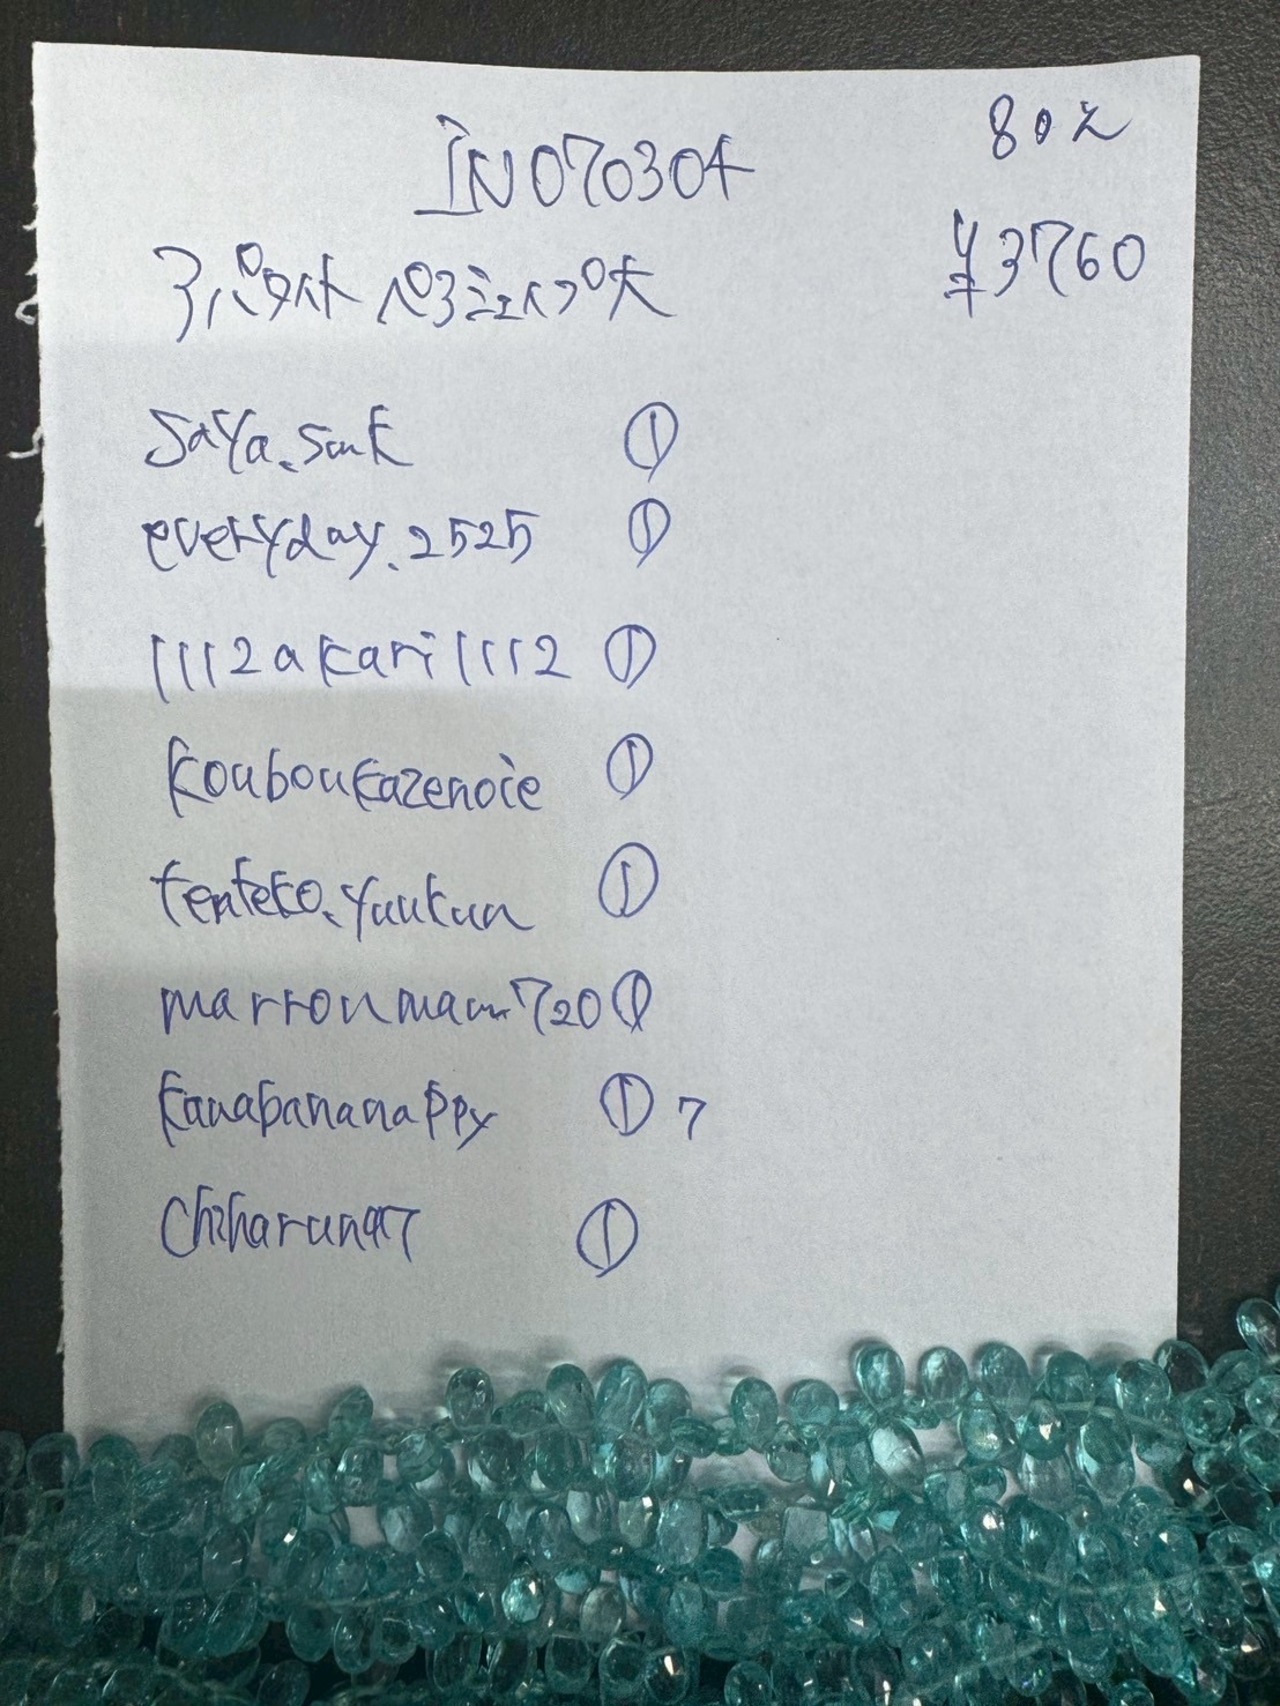 IN070304
80%
¥3760
アパタイト ペアシェイプ大
saya.sak ①
everyday.2525 ①
1112akari1112 ①
kouboukazenoie ①
tenteko.yuukun ①
marronmam720 ①
kanabananappy ① 7
chiharun97 ①